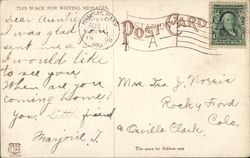 THIS SPACE FOR WRITING MESSAGES.
POST CARD
Dear
I was glad you
sent me a
I would like
to see you.
When are you
coming home?
Your little friend
Marjorie J.
Mrs Ira J. Norris
Rocky Ford
Colo.
Orville Clark,
This space for Address only